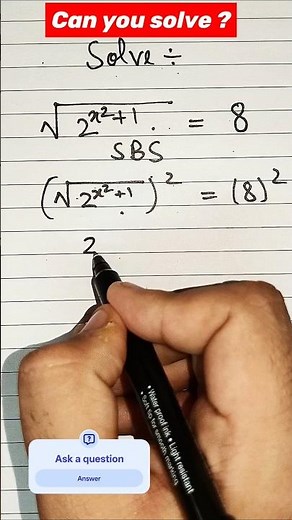 Can you solve ?
Solve ÷
√2^(x²+1) . = 8
SBS
(√2^(x²+1) .)² = (8)²
2
• Water proof ink • Light resistant
Ask a question
Answer